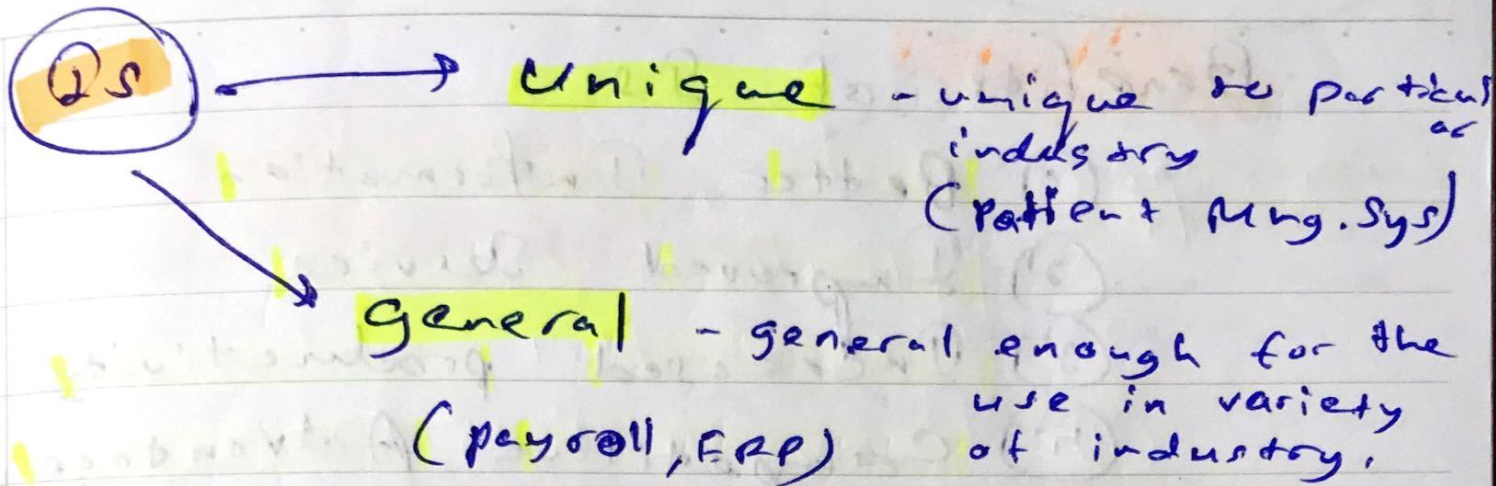 IS → Unique - unique to particular
industry
(Patient Mng. Sys)
general - general enough for the
use in variety
(payroll, ERP) of industry.